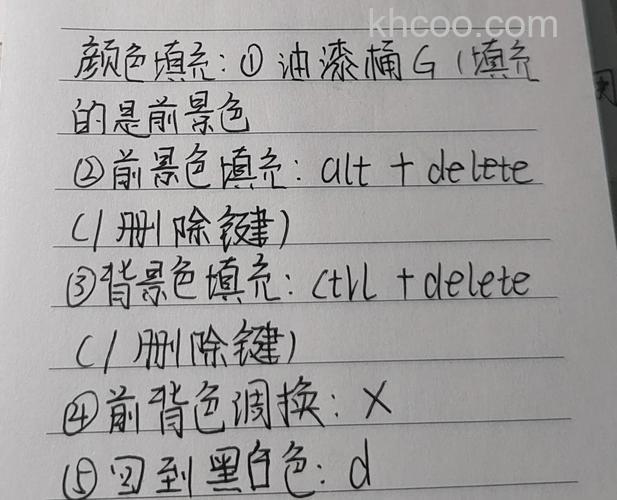 khcoo.com
颜色填充:①油漆桶G(填充
的是前景色
②前景色填充:alt+delete
(/删除键)
③背景色填充:ctrl+delete
(/删除键)
④前背色调换:X
⑤回到黑白色:d